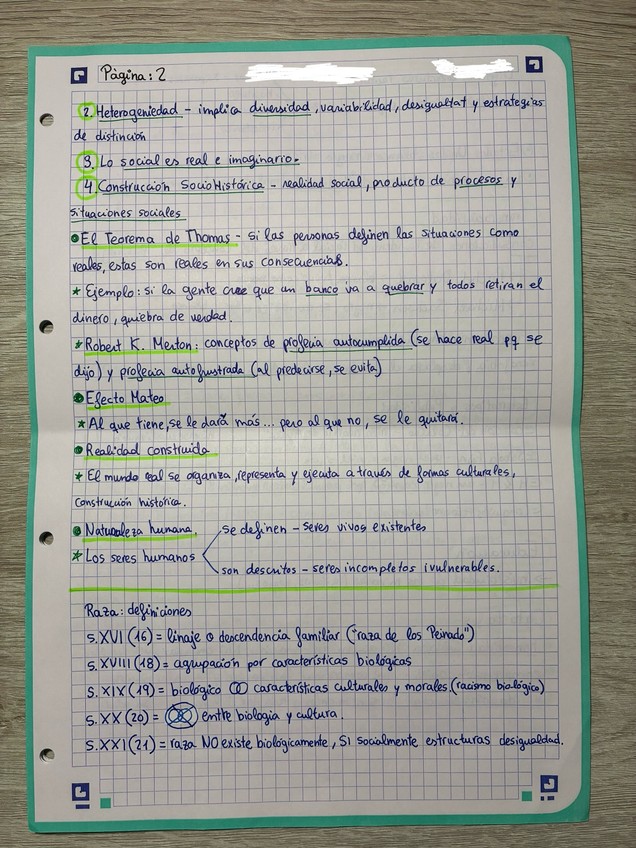 Página: 2
2. Heterogeniedad - implica diversidad, variabilidad, desigualtat y estrategias
de distinción
3. Lo social es real e imaginario.
4. Construcción SocioHistórica - realidad social, producto de procesos y
situaciones sociales
El Teorema de Thomas - si las personas definen las situaciones como
reales, estas son reales en sus consecuencias.
* Ejemplo: si la gente cree que un banco va a quebrar y todos retiran el
dinero, quiebra de verdad.
* Robert K. Merton: conceptos de profecia autocumplida (se hace real pq se
dijo) y profecia autofrustrada (al predecirse, se evita)
Efecto Mateo
* Al que tiene, se le dará más... pero al que no, se le quitará.
Realidad construida
* El mundo real se organiza, representa y ejecuta a través de formas culturales,
construcción histórica.
Naturaleza humana.
se definen - seres vivos existentes
* Los seres humanos
son descritos - seres incompletos i vulnerables.
Raza: definiciones
S. XVI (16) = linaje o descendencia familiar ("raza de los Peinado")
S. XVIII (18) = agrupación por características biológicas
S. XIX (19) = biológico características culturales y morales. (racismo biológico)
S. XX (20) = entre biologia y cultura.
S. XXI (21) = raza NO existe biológicamente, SI socialmente estructuras desigualdad.